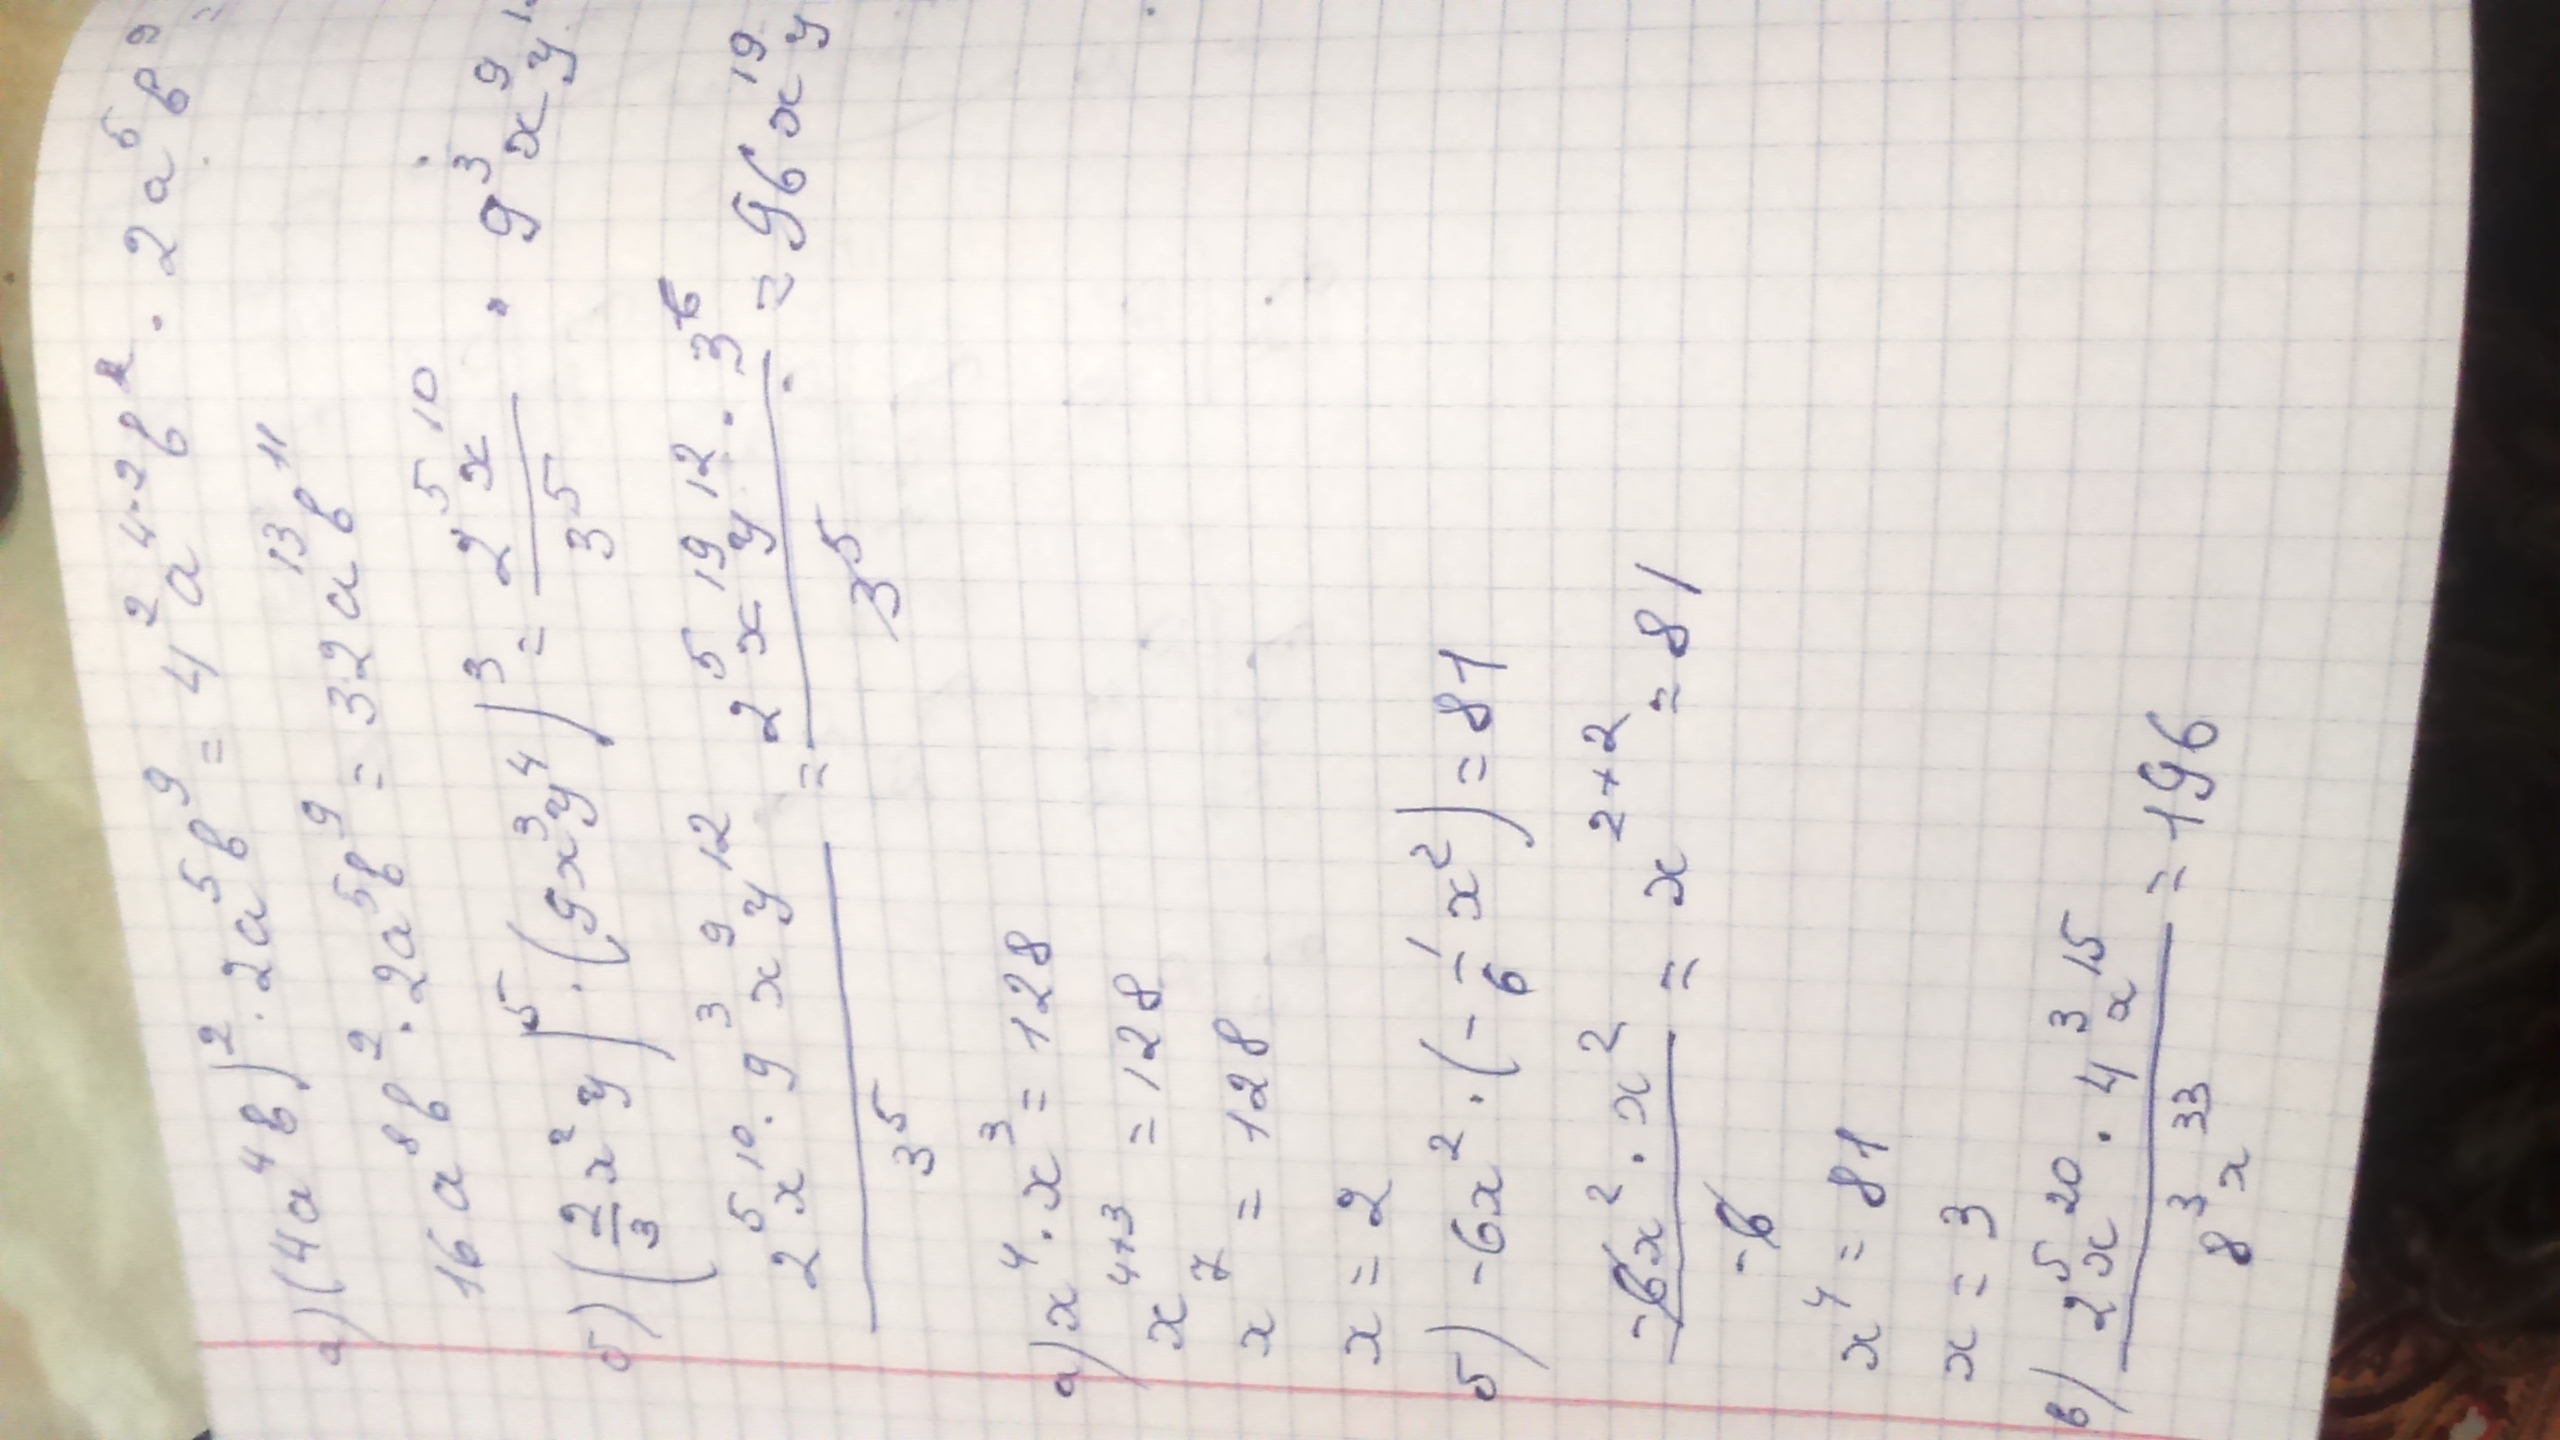 а) (4a⁴b)² · 2a⁵b⁹ = 4²a⁴·²b² · 2a⁵b⁹ =
16a⁸b² · 2a⁵b⁹ = 32a¹³b¹¹
б) (2/3 x²y)⁵ · (9x³y⁴)³ = 2⁵x¹⁰/3⁵ · 9³x⁹y
2⁵x¹⁰ · 9³x⁹y¹²/3⁵ = 2⁵x¹⁹y¹² · 3⁶/3⁵ = 96x¹⁹y
а) x⁴ · x³ = 128
x⁴⁺³ = 128
x⁷ = 128
x = 2
б) -6x² · (-1/6 x²) = 81
-6x² · x²/-6 = x²⁺² = 81
x⁴ = 81
x = 3
в) 2⁵x²⁰ · 4³x¹⁵/8³x³³ = 196